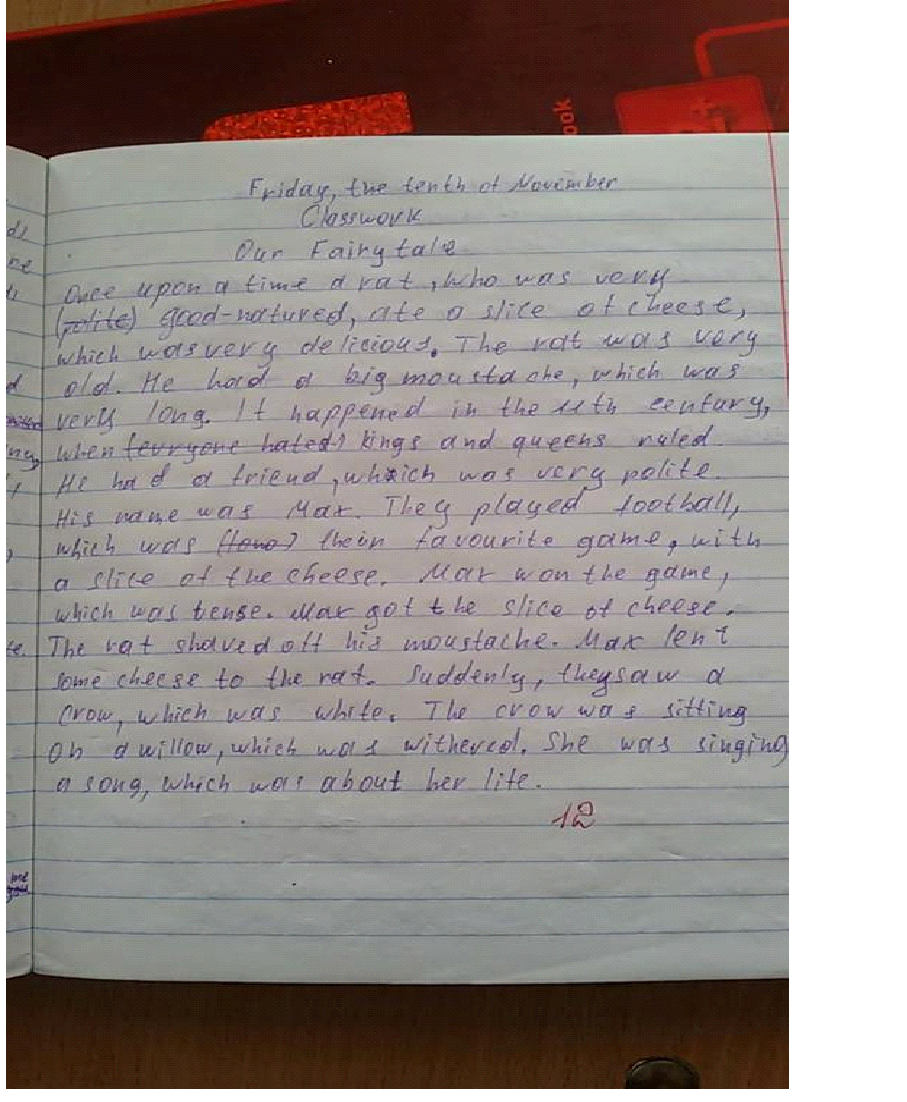 ook
Friday, the tenth of November
Classwork
Our Fairytale
Once upon a time a rat, who was very
(polite) good-natured, ate a slice of cheese,
which was very delicious. The rat was very
old. He had a big moustache, which was
very long. It happened in the century,
when (evryone hated) kings and queens ruled.
He had a friend, which was very polite.
His name was Max. They played football,
which was their favourite game, with
a slice of the cheese. Max won the game,
which was tense. Max got the slice of cheese.
The rat shaved off his moustache. Max lent
some cheese to the rat. Suddenly, they saw a
crow, which was white. The crow was sitting
on a willow, which was withered. She was singing
a song, which was about her life.
12